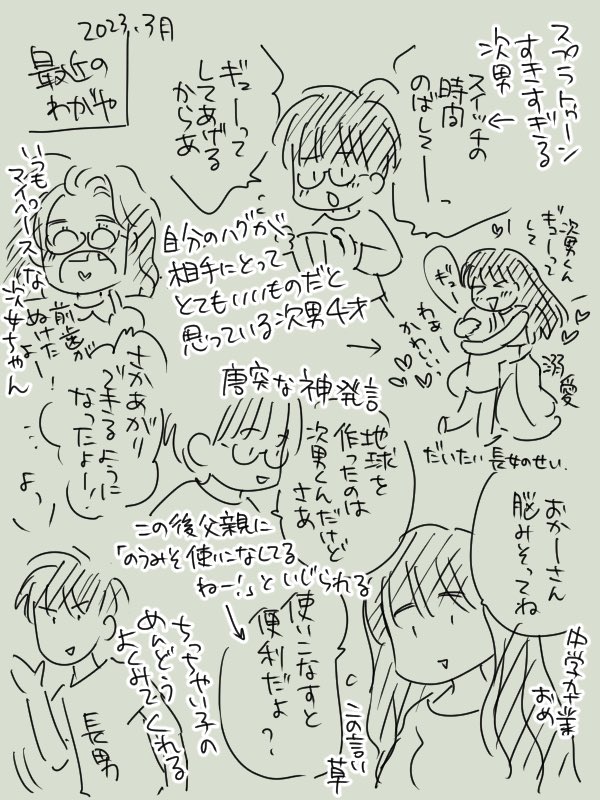 2023.3月
最近の
わがや
スプラトゥーン
すきすぎる
次男
スイッチの
時間
のばしてーっ
ギューって
してあげる
からあ
自分のハグが
相手にとって
とてもいいものだと
思っている次男4才
次男くん
ギューって
して
ギュー
わぁー
かわいい!
溺愛
だいたい長女のせい.
いつも
マイペースな
次女ちゃん
前歯が
ぬけたよー!
さかあがり
できるように
なったよー!
よっ
唐突な神発言
地球を
作ったのは
次男くんだけど
さあ
この後父親に
「のうみそ使いこなしてる
ねー!」といじられる
おかーさん
脳みそってね
使いこなすと
便利だよ?
中学卒業
おめ
この言い草
ちっちゃい子の
めんどう
よくみてくれる
長男